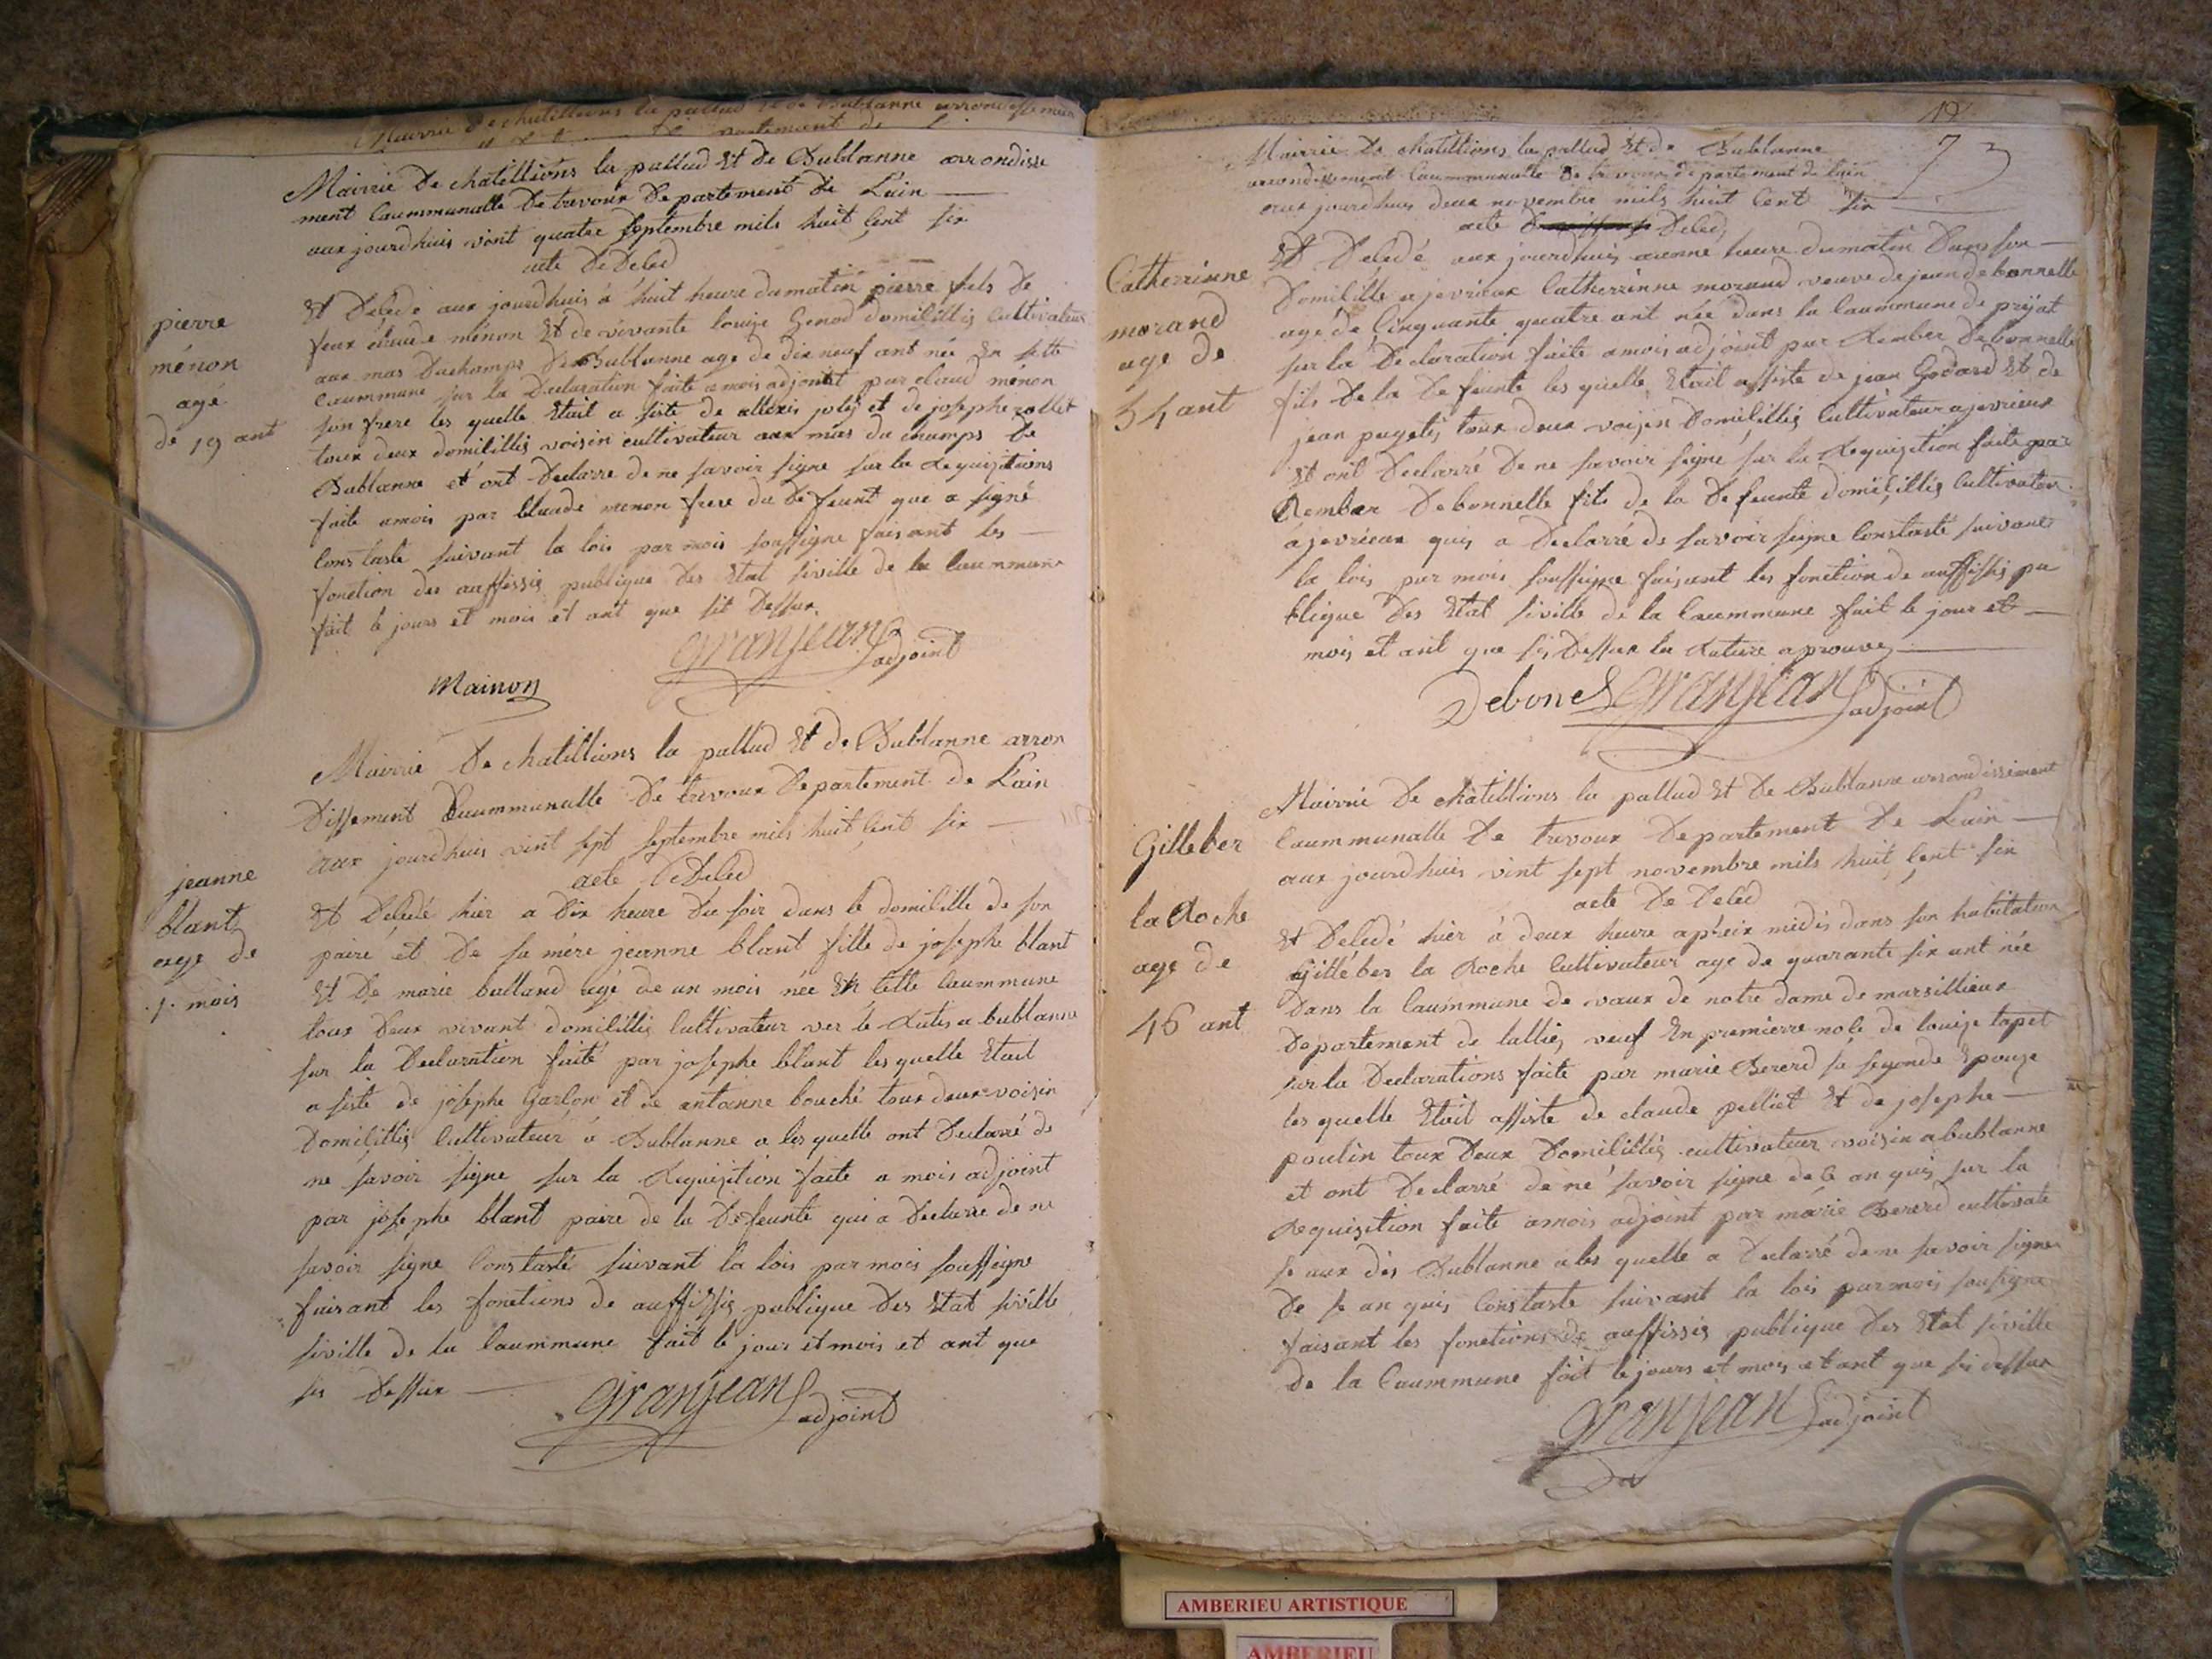 Mairie de chatillions la pallud et de Bublanne arrondissemen
partement de
Mairie De chatillions la pallud Et de Bublanne arrondisse
ment Caummunalle De trevoux Departement de Lain
aux jourdhuis vint quatre septembre mils huit Cent six
acte De Deled
pierre
ménon
agé
de 19 ant
Et Deledé aux jourdhuis à huit heure du matin pierre fils de
feux claude ménon Et de vivante louize Genod domilillis Cultivateur
aux mas Duchamps De Bublanne age de dix neuf ant née En sette
Caummune sur la Declaration faite amois adjoint par claud ménon
son frere les quelle Etait a siste de allexis joly et de josephe rollet
toux deux domilillis voisin cultivateur aux mas du champs De
Bublanne et ont Declarre de ne savoir signe sur la Requizitions
faite amois par Claude menon frere du Defeunt que a signé
Constaste suivant la lois par mois soussigne faisant les
fonction des auffissis publique Des Etat siville de la Caummune
fait le jours et mois et ant que sit Dessux
granjean adjoint
Mainon
Mairie De chatillions la pallud Et de Bublanne arron
Dissement Caummunalle De trevoux Departement de Lain
aux jourdhuis vint sept septembre mils huit Cent six
acte De Deled
jeanne
blant
age de
1 mois
Et Deledé hier a Dix heure Du soir dans le domilille de son
paire et De sa mére jeanne blant fille de josephe blant
Et De marie balland agé de un mois née En Cette Caummune
toux Deux vivant domilillis Cultivateur ver le Rutis a bublanne
sur la Declaration faite par josephe blant les quelle Etait
a siste de josephe Garlon et de antoinne bouché toux deux voisin
Domilillis Cultivateur à Bublanne a les quelle ont Declarré de
ne savoir signe sur la Requizition faite a mois adjoint
par josephe blant paire de la Defeunte qui a Declarre de ne
savoir signe Constasté suivant la lois par mois soussigne
faisant les fonctions de auffissis publique Des Etat siville
siville de la Caummune fait le jour et mois et ant que
sis Dessux
granjean adjoint
19
73
Mairie De chatillions la pallud Et de Bublanne
arrondissement Caummunalle De trevoux departement de lain
aux jourdhuis deux novembre mils huit Cent six
acte De Deled
Catherinne
morand
age de
54 ant
Et Deledé aux jourdhuis a onne heure du matin Dans son
Domilille a jevrieux Catherrinne morand veuve de jean debonnelle
agé de Cinquante quatre ant née dans la Caummune de priÿat
sur la Declaration faite amois adjoint par Rember Debonnelle
fils De la Defeunte les quelle Etait assiste de jean Godard Et de
jean pugetis toux deux voisin Domilillis Cultivateur ajevrieux
Et ont Declarré De ne savoir signe sur la Requizition faite par
Rember Debonnelle fils de la Defeunte domilillis Cultivateur
àjevrieux quis a Declarré de savoir signe Constasté suivant
la lois par mois soussigne faisant les fonction de auffissis pu
blique Des Etat siville de la Caummune fait le jour et
mois et ant que sis Dessux la Rature aprouvez
Debonel granjean adjoint
Mairie De chatillions la pallud Et De Bublanne arrondissiment
Caummunalle De trevoux Departement De Lain
aux jourdhuis vint sept novembre mils huit Cent six
acte De Deled
Gilleber
la Roche
age de
46 ant
Et Deledé hier à deux heure apreix midis dans son habitation
Gilléber la Roche Cultivateur age de quarante six ant née
Dans la Caummune de vaux de notre dame de marsillieux
Departement de lallier veuf En premierre nole de louize tapet
sur la Declarations faite par marie Bererd sa segonde Epouze
les quelle Etait assiste de claude pelliet Et de josephe
poulin toux Deux Domilillis cultivateur voisin a bublanne
et ont Declarré de né savoir signe de Ce an quis sur la
Requizition faite amois adjoint par marie Bererd cultivate
se aux dis Bublanne a les quelle a Declarré de ne savoir signe
De se an quis Constaste suivant la lois par mois sousigne
faisant les fonctions de auffissis publique Des Etat siville
de la Caummune fait le jours et mois et ant que sis dessux
granjean adjoint
AMBERIEU ARTISTIQUE
AMBERIEU